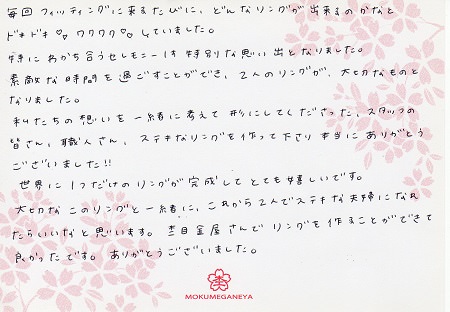 毎回フィッティングに来るたびに、どんなリングが出来るのかなと
ドキドキ♡ワクワク♡していました。
特にわかち合うセレモニーは特別な思い出となりました。
素敵な時間を過ごすことができ、2人のリングが、大切なものと
なりました。
私たちの想いを一緒に考えて形にしてくださった、スタッフの
皆さん、職人さん、ステキなリングを作って下さり本当にありがとう
ございました!!
世界に1つだけのリングが完成してとても嬉しいです。
大切なこのリングと一緒に、これから2人でステキな夫婦になれ
たらいいなと思います。杢目金屋さんでリングを作ることができて
良かったです。ありがとうございました。
MOKUMEGANEYA